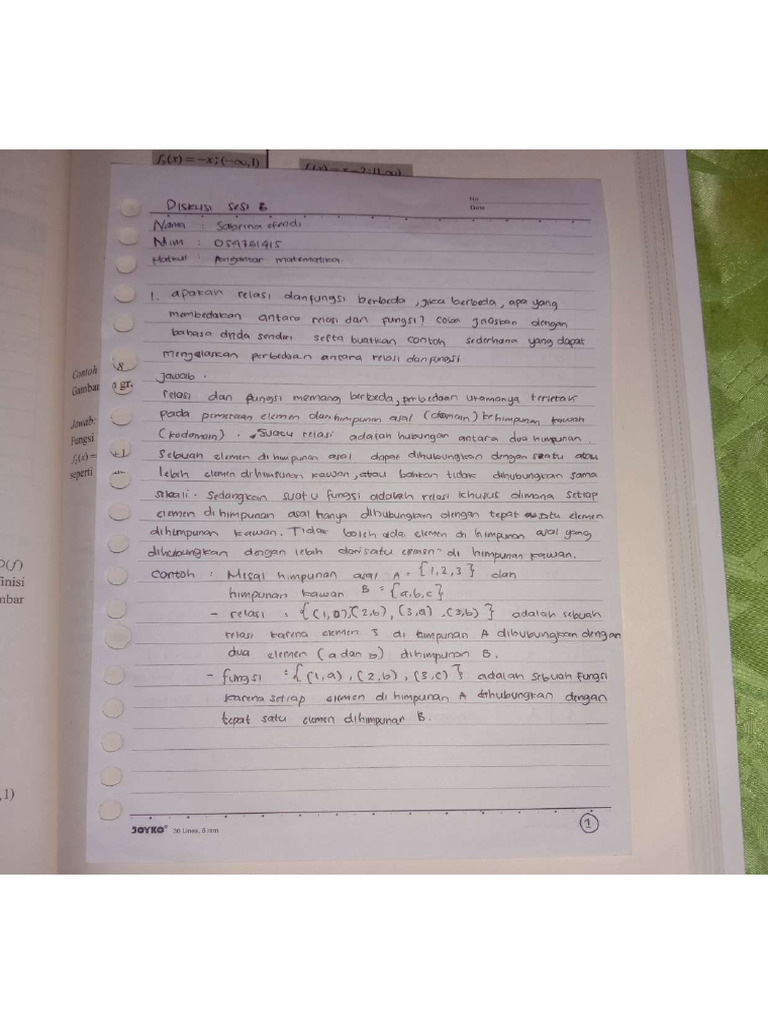 f₃(x) = -x ; (-∞, 1)
No
Date
Diskusi sesi 6
Nama : Sabrina efendi
Nim : 054761415
Matkul : Pengantar matematika
1. apakah relasi dan fungsi berbeda, jika berbeda, apa yang
membedakan antara relasi dan fungsi? coba jelaskan dengan
bahasa anda sendiri serta buatkan contoh sederhana yang dapat
menjelaskan perbedaan antara relasi dan fungsi
Jawab.
relasi dan fungsi memang berbeda, perbedaan utamanya terletak
pada pemetaan elemen dari himpunan asal (domain) ke himpunan kawan
(kodomain). Suatu relasi adalah hubungan antara dua himpunan.
Sebuah elemen di himpunan asal dapat dihubungkan dengan satu atau
lebih elemen di himpunan kawan, atau bahkan tidak dihubungkan sama
sekali. Sedangkan suatu fungsi adalah relasi khusus dimana setiap
elemen di himpunan asal hanya dihubungkan dengan tepat satu elemen
di himpunan kawan. Tidak boleh ada elemen di himpunan asal yang
dihubungkan dengan lebih dari satu elemen di himpunan kawan.
Contoh : Misal himpunan asal A = {1,2,3} dan
himpunan kawan B = {a,b,c}
- relasi : {(1,a),(2,b), (3,a), (3,b)} adalah sebuah
relasi karena elemen 3 di himpunan A dihubungkan dengan
dua elemen (a dan b) di himpunan B.
- fungsi : {(1,a), (2,b), (3,c)} adalah sebuah fungsi
karena setiap elemen di himpunan A dihubungkan dengan
tepat satu elemen di himpunan B.
JOYKO® 30 Lines, 8 mm
1
Contoh
Gambar
gr.
Jawab:
Fungsi
f₃(x) =
seperti
(f)
finisi
mbar
,1)